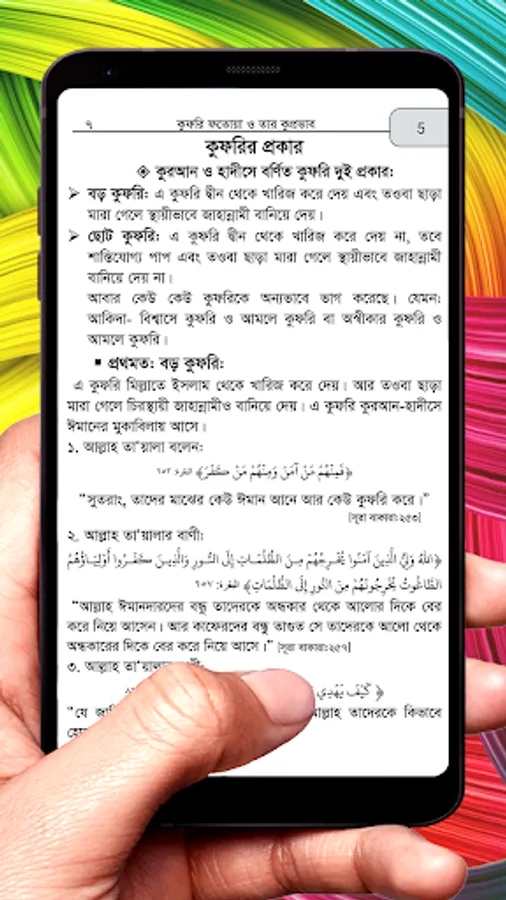 ৭ কুফরি ফতোয়া ও তার কুপ্রভাব
5
কুফরির প্রকার
◈ কুরআন ও হাদীসে বর্ণিত কুফরি দুই প্রকার:
➢ বড় কুফরি: এ কুফরি দ্বীন থেকে খারিজ করে দেয় এবং তওবা ছাড়া
মারা গেলে স্থায়ীভাবে জাহান্নামী বানিয়ে দেয়।
➢ ছোট কুফরি: এ কুফরি দ্বীন থেকে খারিজ করে দেয় না, তবে
শাস্তিযোগ্য পাপ এবং তওবা ছাড়া মারা গেলে স্থায়ীভাবে জাহান্নামী
বানিয়ে দেয় না।
আবার কেউ কেউ কুফরিকে অন্যভাবে ভাগ করেছে। যেমন:
আকিদা- বিশ্বাসে কুফরি ও আমলে কুফরি বা অস্বীকার কুফরি ও
আমলে কুফরি।
▪ প্রথমত: বড় কুফরি:
এ কুফরি মিল্লাতে ইসলাম থেকে খারিজ করে দেয়। আর তওবা ছাড়া
মারা গেলে চিরস্থায়ী জাহান্নামীও বানিয়ে দেয়। এ কুফরি কুরআন-হাদীসে
ঈমানের মুকাবিলায় আসে।
১. আল্লাহ তা'য়ালা বলেন:
﴿فَمِنْهُمْ مَنْ آمَنَ وَمِنْهُمْ مَنْ كَفَرَ﴾ البقرة: ٢٥٣
“সুতরাং, তাদের মাঝের কেউ ঈমান আনে আর কেউ কুফরি করে।”
[সূরা বাকারা:২৫৩]
২. আল্লাহ তা'য়ালার বাণী:
﴿اللَّهُ وَلِيُّ الَّذِينَ آمَنُوا يُخْرِجُهُمْ مِنَ الظُّلُمَاتِ إِلَى النُّورِ وَالَّذِينَ كَفَرُوا أَوْلِيَاؤُهُمُ
الطَّاغُوتُ يُخْرِجُونَهُمْ مِنَ النُّورِ إِلَى الظُّلُمَاتِ﴾ البقرة: ٢٥٧
“আল্লাহ ঈমানদারদের বন্ধু তাদেরকে অন্ধকার থেকে আলোর দিকে বের
করে নিয়ে আসেন। আর কাফেরদের বন্ধু তাগুত সে তাদেরকে আলো থেকে
অন্ধকারের দিকে বের করে নিয়ে আসে।” [সূরা বাকারা:২৫৭]
৩. আল্লাহ তা'য়ালার
﴿ كَيْفَ يَهْدِي
“যে আল্লাহ তাদেরকে কিভাবে